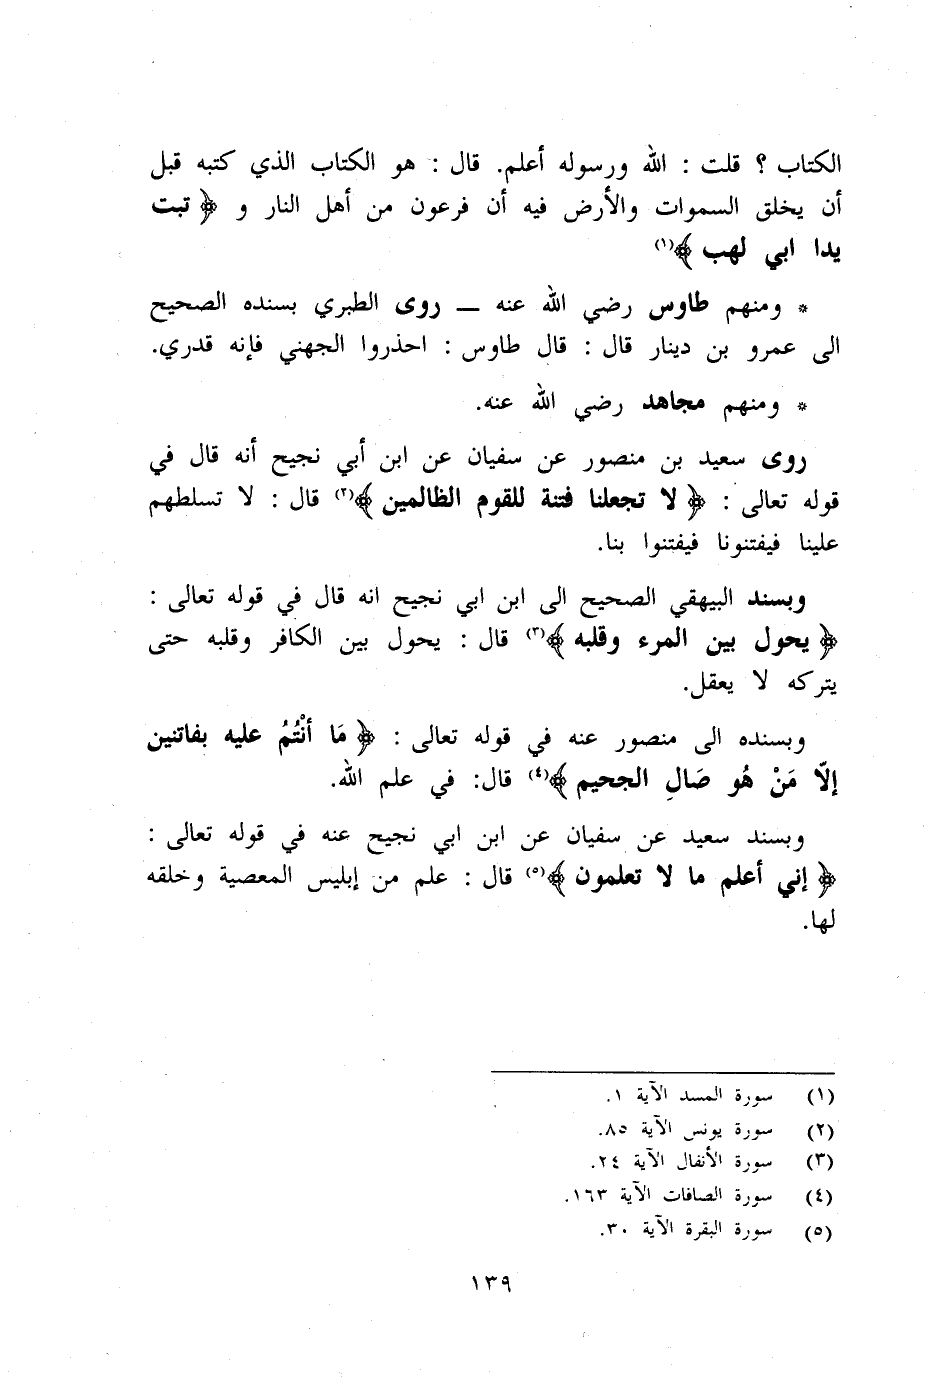 الكتاب ؟ قلت : الله ورسوله أعلم. قال : هو الكتاب الذي كتبه قبل
أن يخلق السموات والأرض فيه أن فرعون من أهل النار و ﴿ تبت
يدا ابي لهب ﴾(١)
* ومنهم طاوس رضي الله عنه — روى الطبري بسنده الصحيح
الى عمرو بن دينار قال : قال طاوس : احذروا الجهني فإنه قدري.
* ومنهم مجاهد رضي الله عنه.
روى سعيد بن منصور عن سفيان عن ابن أبي نجيح أنه قال في
قوله تعالى : ﴿ لا تجعلنا فتنة للقوم الظالمين ﴾(٢) قال : لا تسلطهم
علينا فيفتنونا فيفتنوا بنا.
وبسند البيهقي الصحيح الى ابن ابي نجيح انه قال في قوله تعالى :
﴿ يحول بين المرء وقلبه ﴾(٣) قال : يحول بين الكافر وقلبه حتى
يتركه لا يعقل.
وبسنده الى منصور عنه في قوله تعالى : ﴿ مَا أنْتُمُ عليه بفاتنين
إلّا مَنْ هُو صَالِ الجحيم ﴾(٤) قال: في علم الله.
وبسند سعيد عن سفيان عن ابن ابي نجيح عنه في قوله تعالى :
﴿ إني أعلم ما لا تعلمون ﴾(٥) قال : علم من إبليس المعصية وخلقه
لها.
(١) سورة المسد الآية ١.
(٢) سورة يونس الآية ٨٥.
(٣) سورة الأنفال الآية ٢٤.
(٤) سورة الصافات الآية ١٦٣.
(٥) سورة البقرة الآية ٣٠.
١٣٩